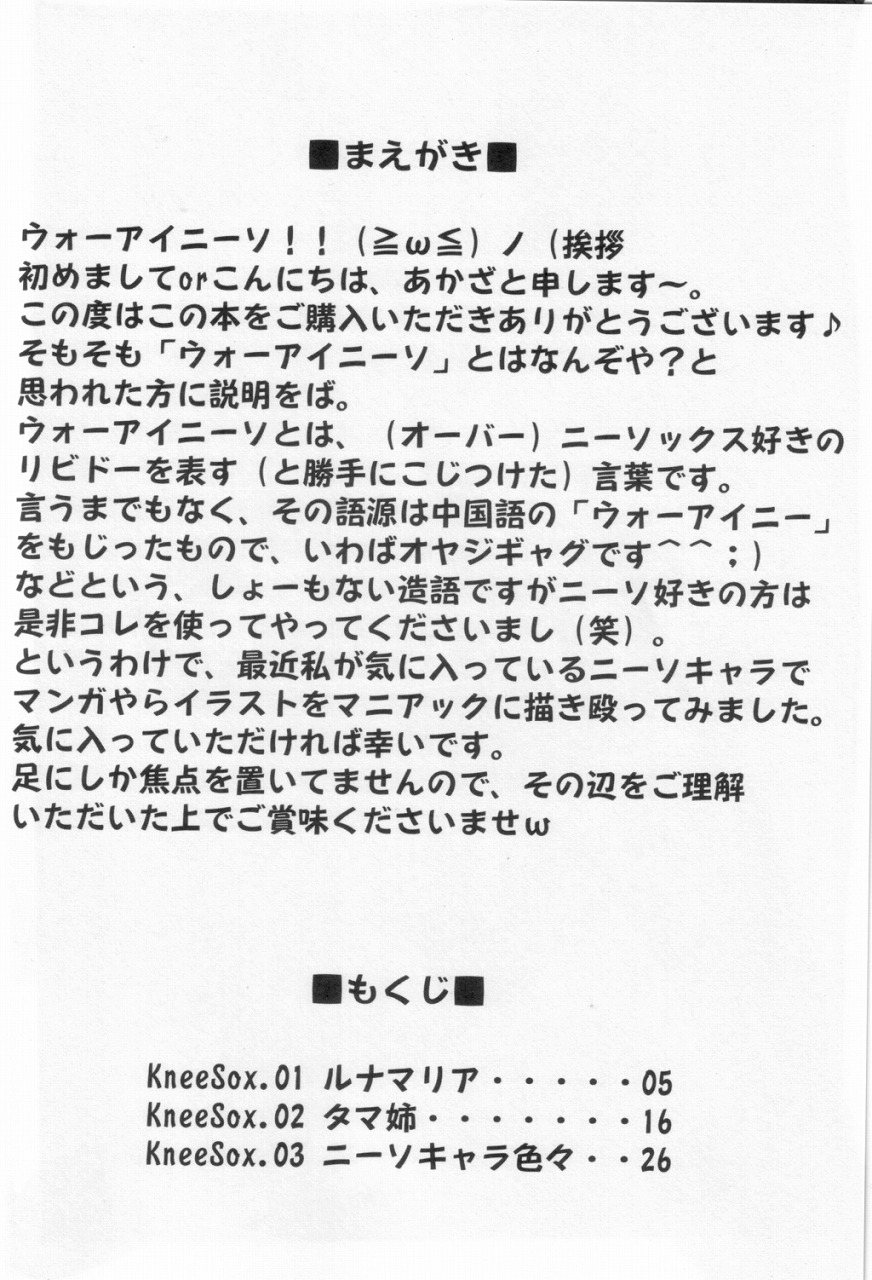 ■まえがき■
ウォーアイニーソ！！（≧ω≦）ノ（挨拶
初めましてorこんにちは、あかざと申します～。
この度はこの本をご購入いただきありがとうございます♪
そもそも「ウォーアイニーソ」とはなんぞや？と
思われた方に説明をば。
ウォーアイニーソとは、（オーバー）ニーソックス好きの
リビドーを表す（と勝手にこじつけた）言葉です。
言うまでもなく、その語源は中国語の「ウォーアイニー」
をもじったもので、いわばオヤジギャグです＾＾；）
などという、しょーもない造語ですがニーソ好きの方は
是非コレを使ってやってくださいまし（笑）。
というわけで、最近私が気に入っているニーソキャラで
マンガやらイラストをマニアックに描き殴ってみました。
気に入っていただければ幸いです。
足にしか焦点を置いてませんので、その辺をご理解
いただいた上でご賞味くださいませω
■もくじ■
KneeSox.01 ルナマリア・・・・・05
KneeSox.02 タマ姉・・・・・・・16
KneeSox.03 ニーソキャラ色々・・26